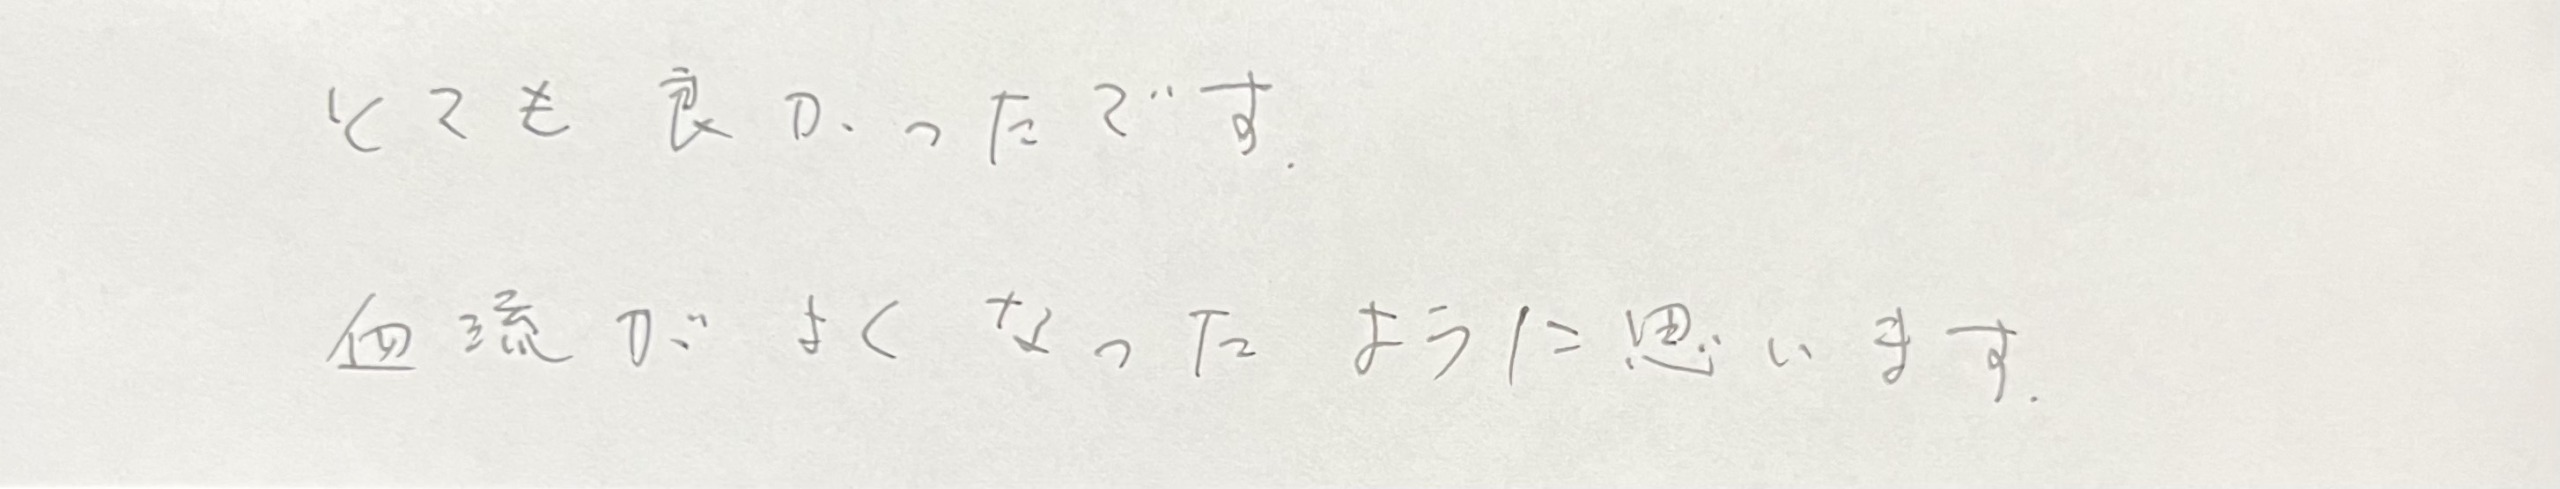 とても良かったです.
血流がよくなったように思います.